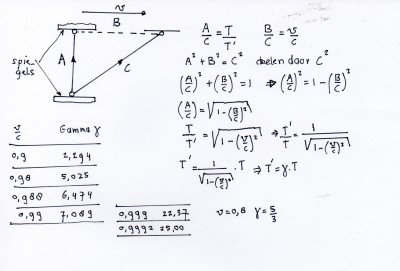 v
B
spie-
gels
A
C
A/C = T/T' B/C = v/c
A² + B² = C² delen door C²
(A/C)² + (B/C)² = 1 ⇒ (A/C)² = 1 - (B/C)²
(A/C) = √(1-(B/C)²)
T/T' = √(1-(v/c)²) ⇒ T'/T = 1/√(1-(v/c)²)
T' = 1/√(1-(v/c)²) · T ⇒ T' = γ.T
v/c Gamma γ
0,9 2,294
0,98 5,025
0,988 6,474
0,99 7,089
0,999 22,37
0,9992 25,00
v=0,8 γ = 5/3